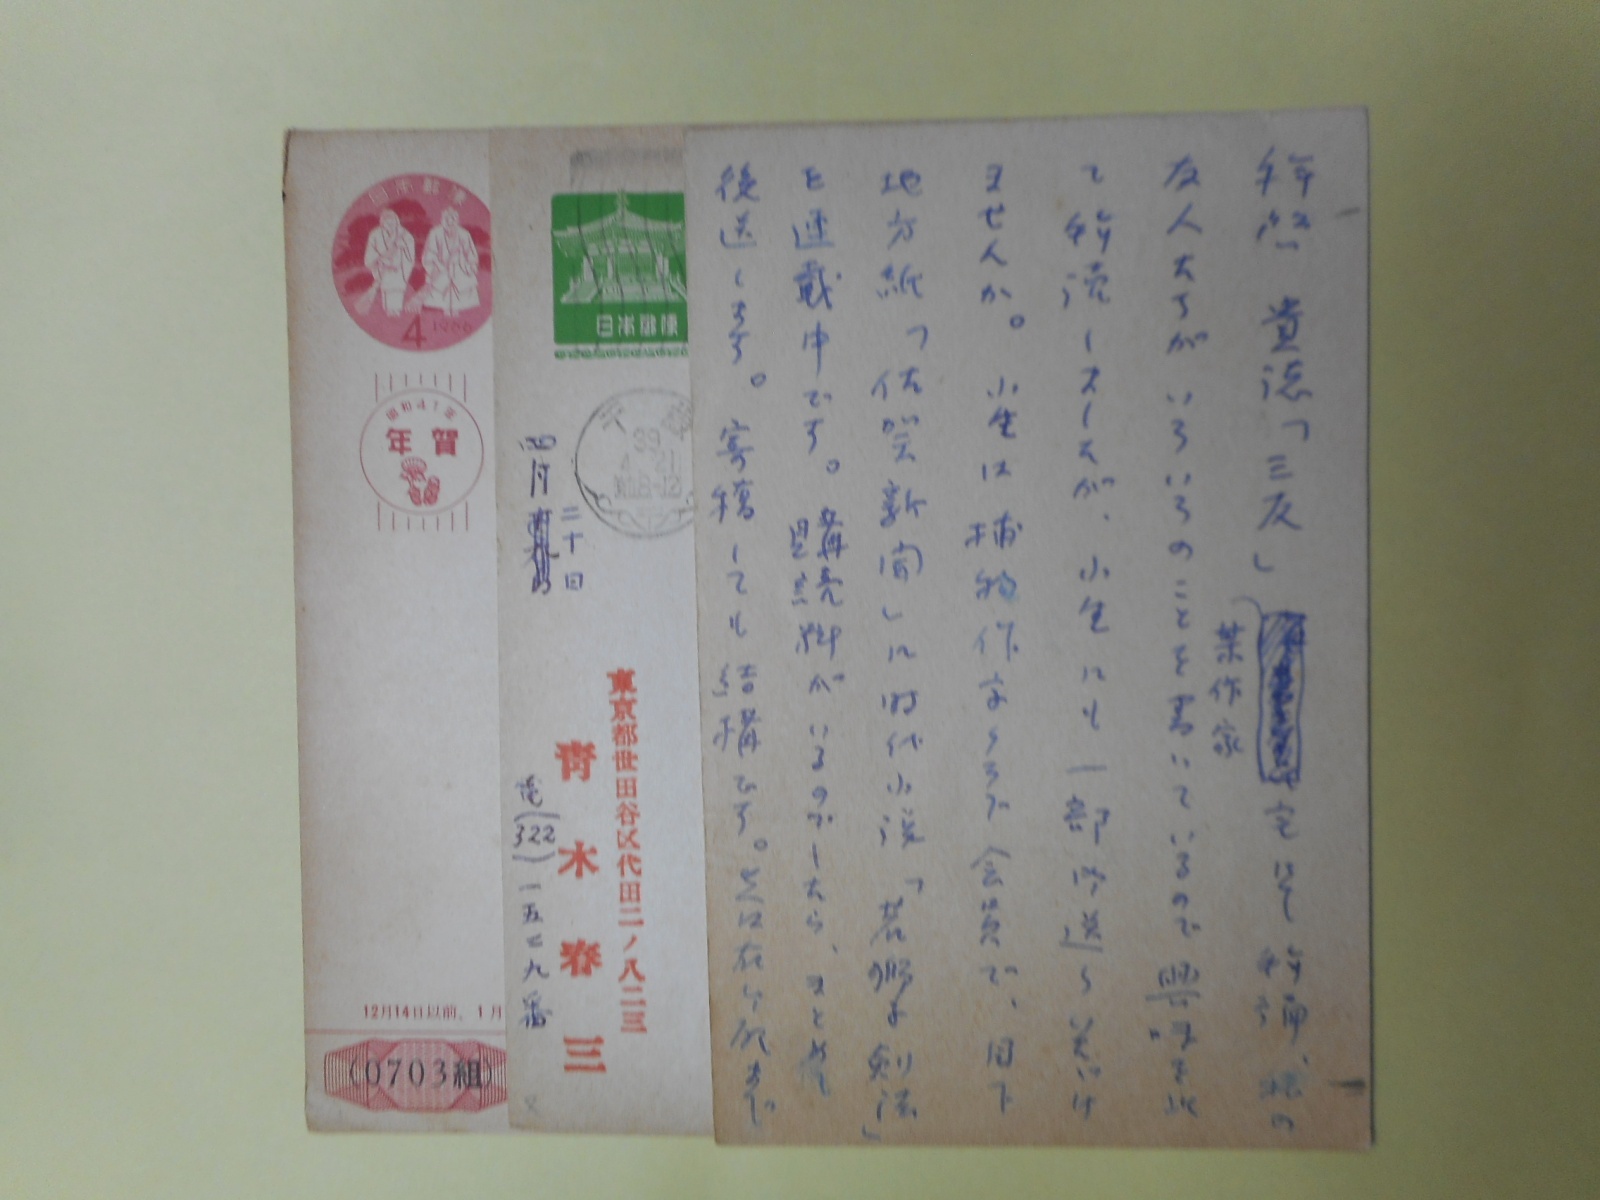 拝啓 貴誌「三友」
某作家
宅にて拝誦、私の
友人たちがいろいろのことを書いているので興味を以
て拝読しましたが、小生にも一部御送り美いけ
ませんか。小生は捕物作家クラブ会員で、目下
地方紙「佐賀新聞」に時代小説「若郷子剣法」
を連載中です。購読料がいるのでしたら、まとめて
後送します。寄稿しても結構です。先は右お願まで
日本郵便
39
4.21
四月
二十日
東京都世田谷区代田二ノ八二三
青木春三
電(322)一五七九番
日本郵便
4 1966
昭和41年
年賀
12月14日以前、1月
(0703組)